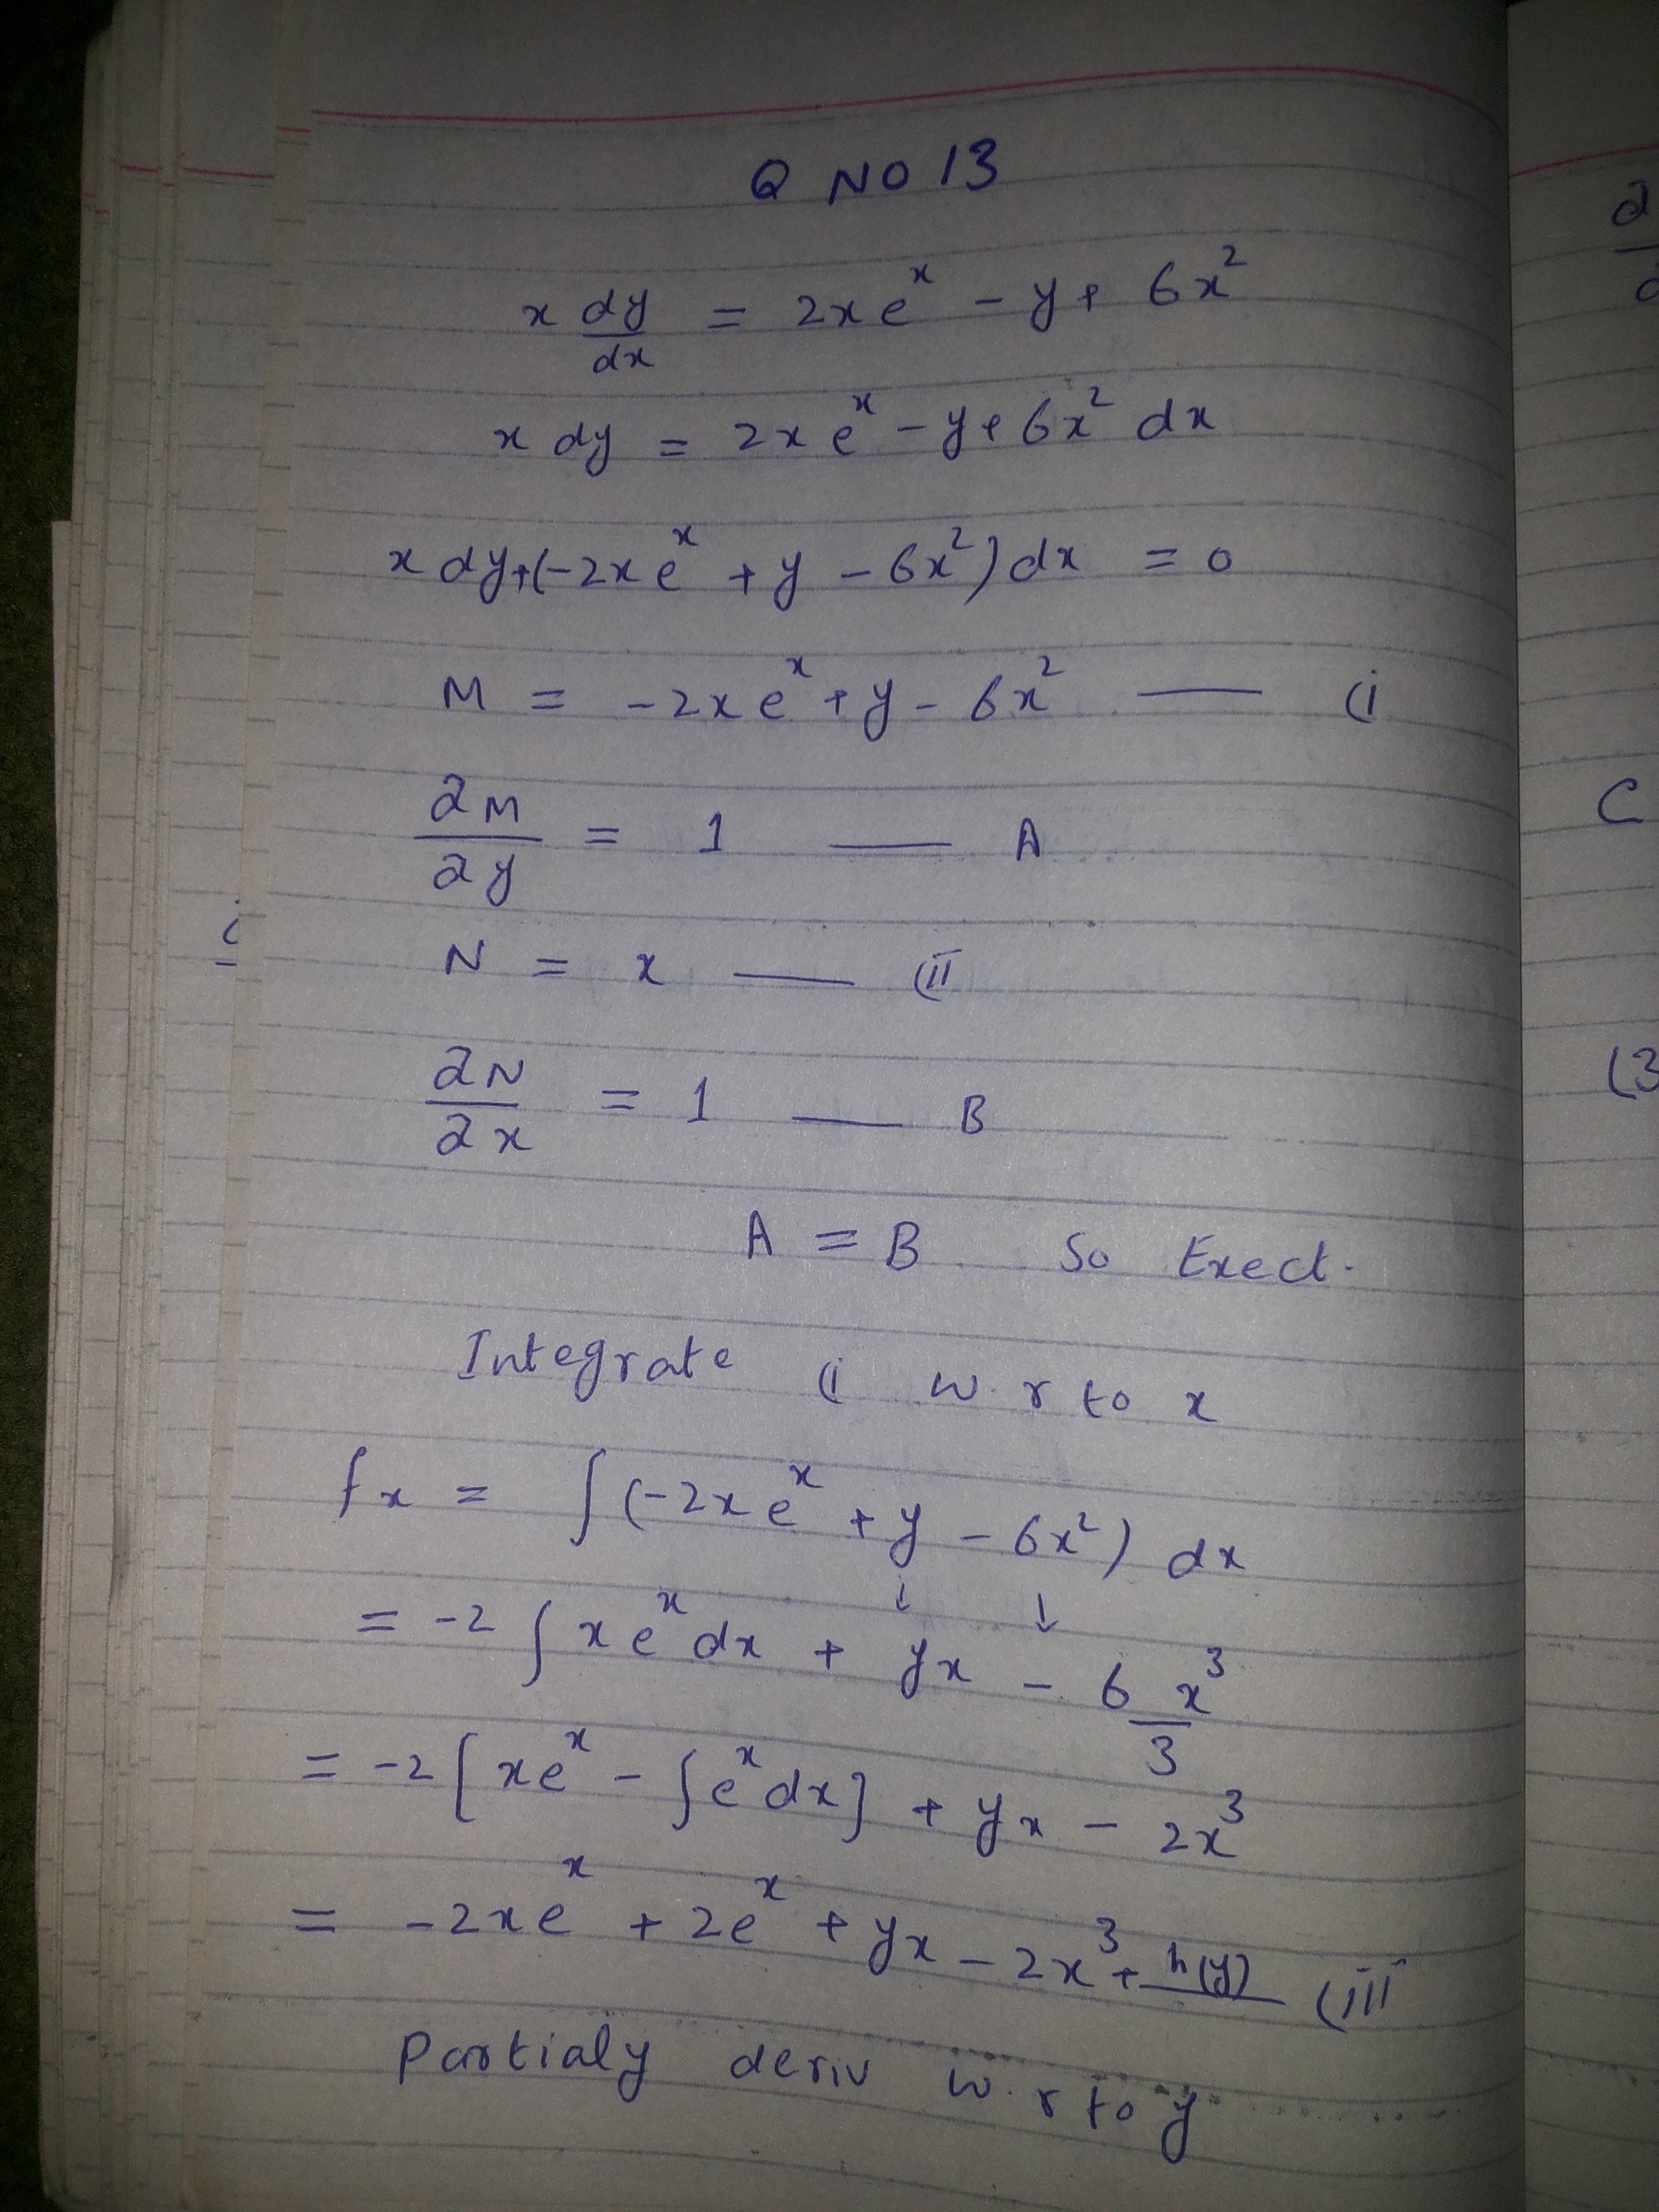 Q NO 13
x dy/dx = 2xe^x - y + 6x^2
x dy = 2xe^x - y + 6x^2 dx
x dy + (-2xe^x + y - 6x^2) dx = 0
M = -2xe^x + y - 6x^2 — (i
∂M/∂y = 1 — A
N = x — (ii
∂N/∂x = 1 — B
A = B So Exect.
Integrate (i w.r to x
fx = ∫(-2xe^x + y - 6x^2) dx
↓ ↓
= -2 ∫ xe^x dx + yx - 6 x^3/3
= -2 [xe^x - ∫e^x dx] + yx - 2x^3
= -2xe^x + 2e^x + yx - 2x^3 + h(y) — (iii
Partialy deriv w.r to y
∂
C
(3